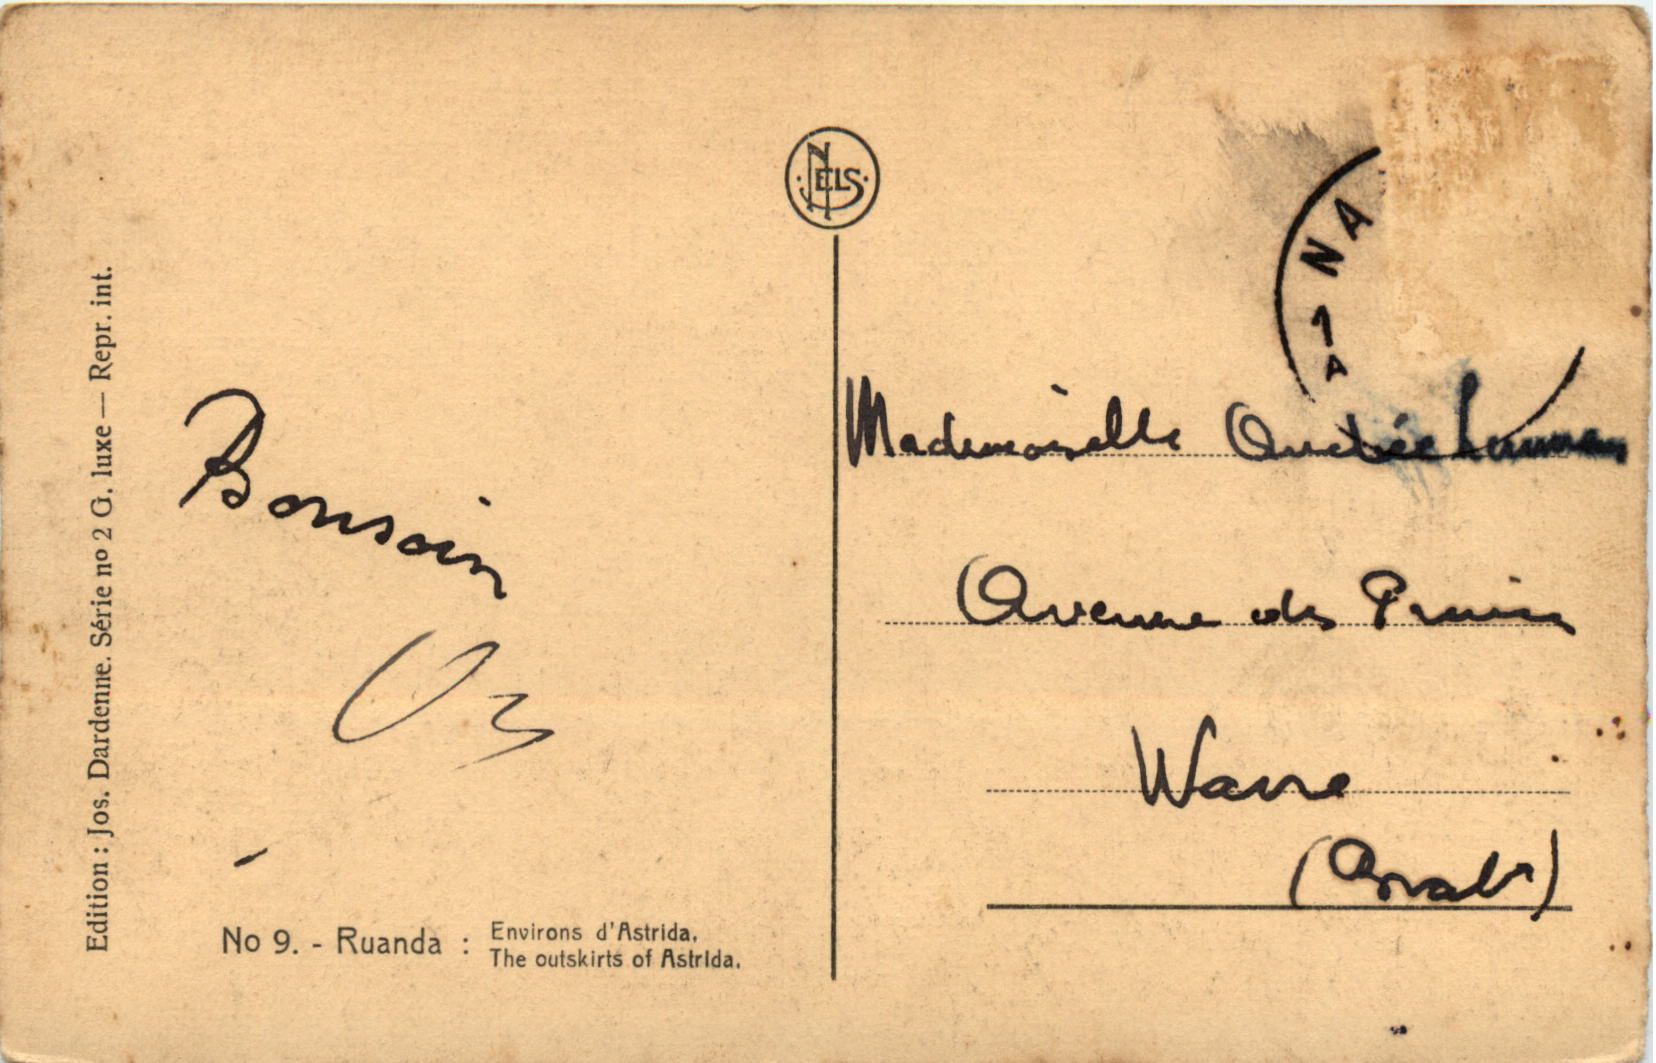 Edition : Jos. Dardenne. Série nº 2 G. luxe — Repr. int.
NELS
NA
1
A
Bonsoir
Mademoiselle Andrée
Avenue des Princes
Wavre
(Brabt)
No 9. - Ruanda : Environs d'Astrida.
The outskirts of Astrida.